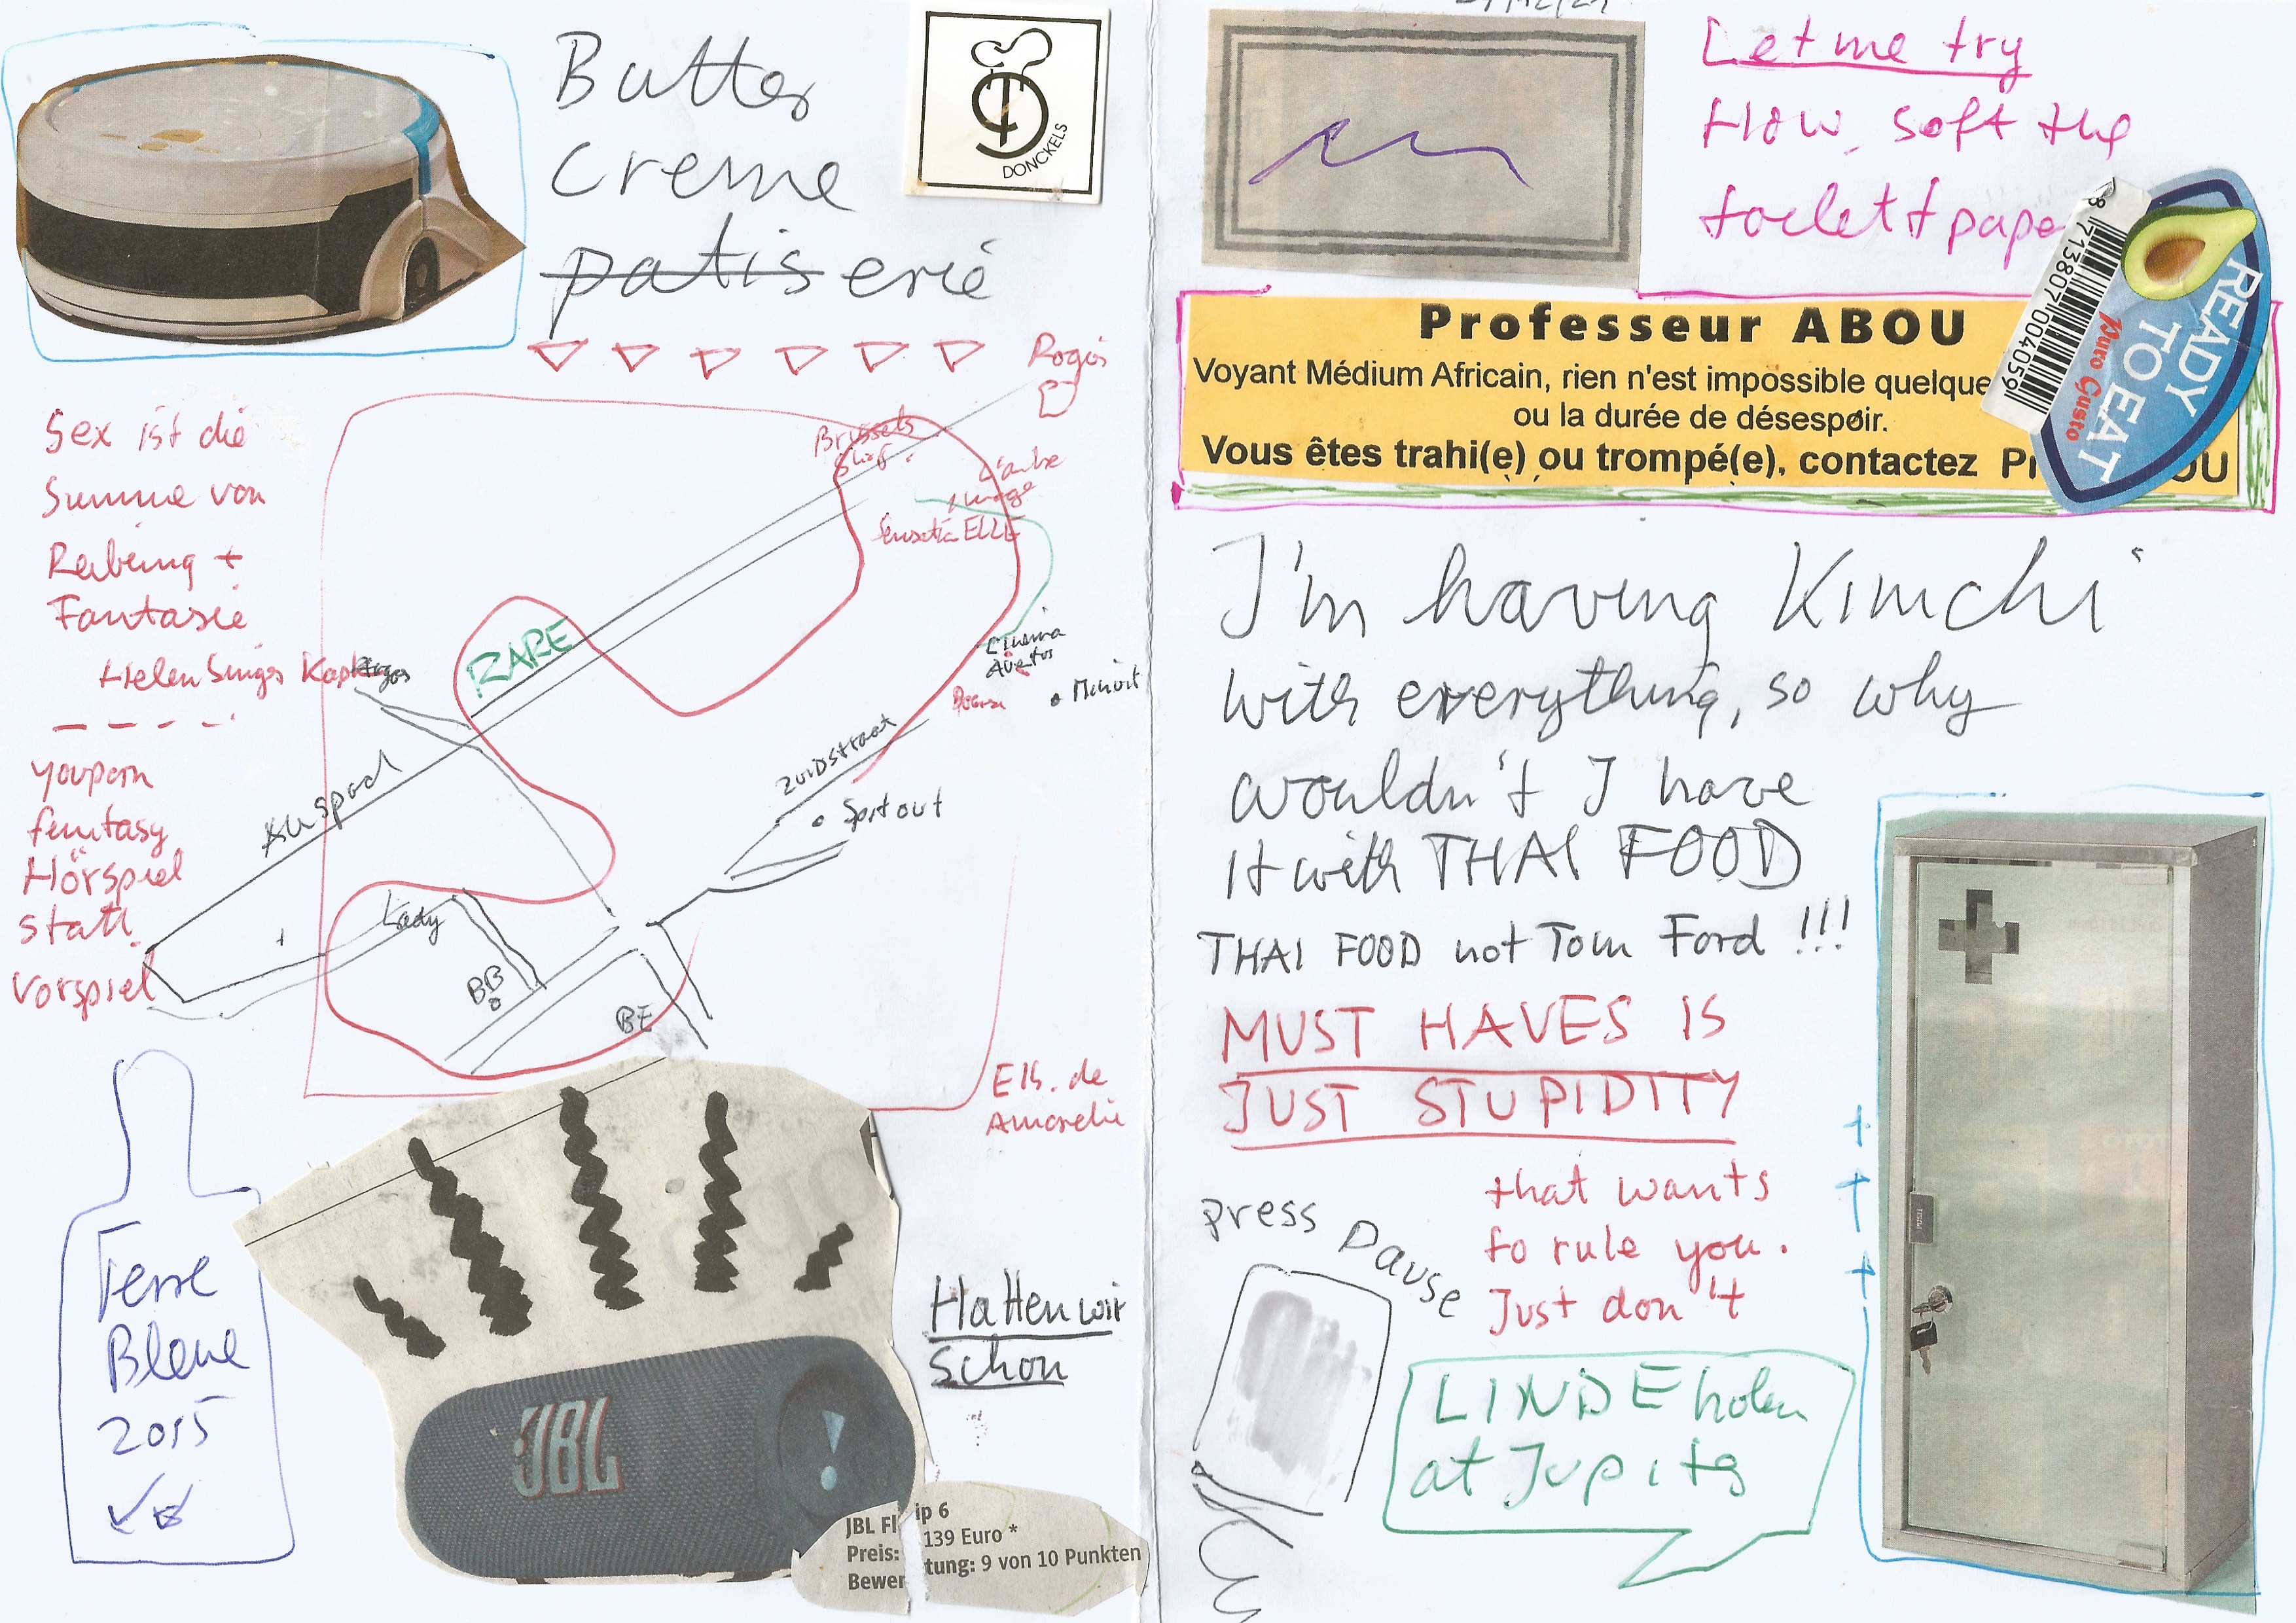 Butter
Creme
patiserie
DONCKELS
Sex ist die
Summe von
Reibung +
Fantasie
Helen Singer
youporn
femtasy
Hörspiel
statt
Vorspiel
Brussels
Sensatia ELLE
RARE
Cinema
Zuidstraat
Spit out
Lady
BB
BE
Terre
Bleue
2015
JBL
JBL Fl ip 6
Preis: 139 Euro *
Bewer tung: 9 von 10 Punkten
Hatten wir
schon
Let me try
How soft the
toilett pape
8 713807 004059
READY
TO EAT
Puro Gusto
Professeur ABOU
Voyant Médium Africain, rien n'est impossible quelque
ou la durée de désespoir.
Vous êtes trahi(e) ou trompé(e), contactez Pr OU
I'm having Kimchi
with everything, so why
wouldn't I have
it with THAI FOOD
THAI FOOD not Tom Ford !!!
MUST HAVES IS
JUST STUPIDITY
that wants
to rule you.
Just don't
press Pause
LINDE holen
at Jupiter